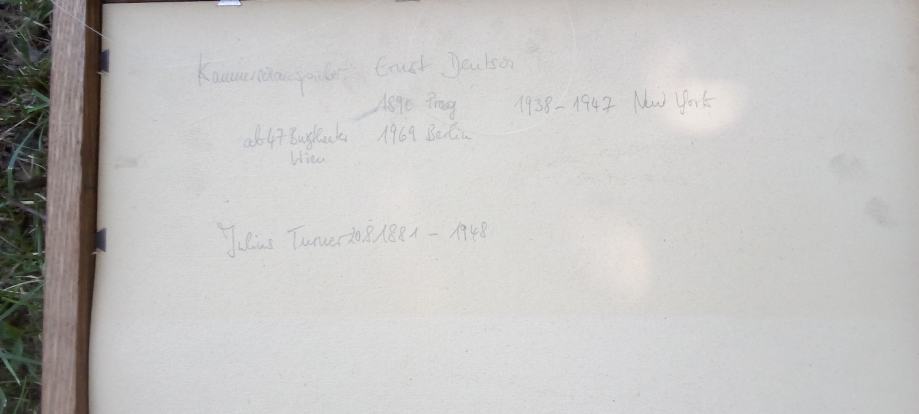 Kammerschauspieler Ernst Deutsch
1890 Prag 1938-1947 New York
ab 47 Burgtheater 1969 Berlin
Wien
Julius Turner 20.8.1881 - 1948